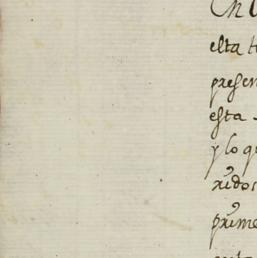 En
esta t
presen
esta
y lo q
ridos
prime